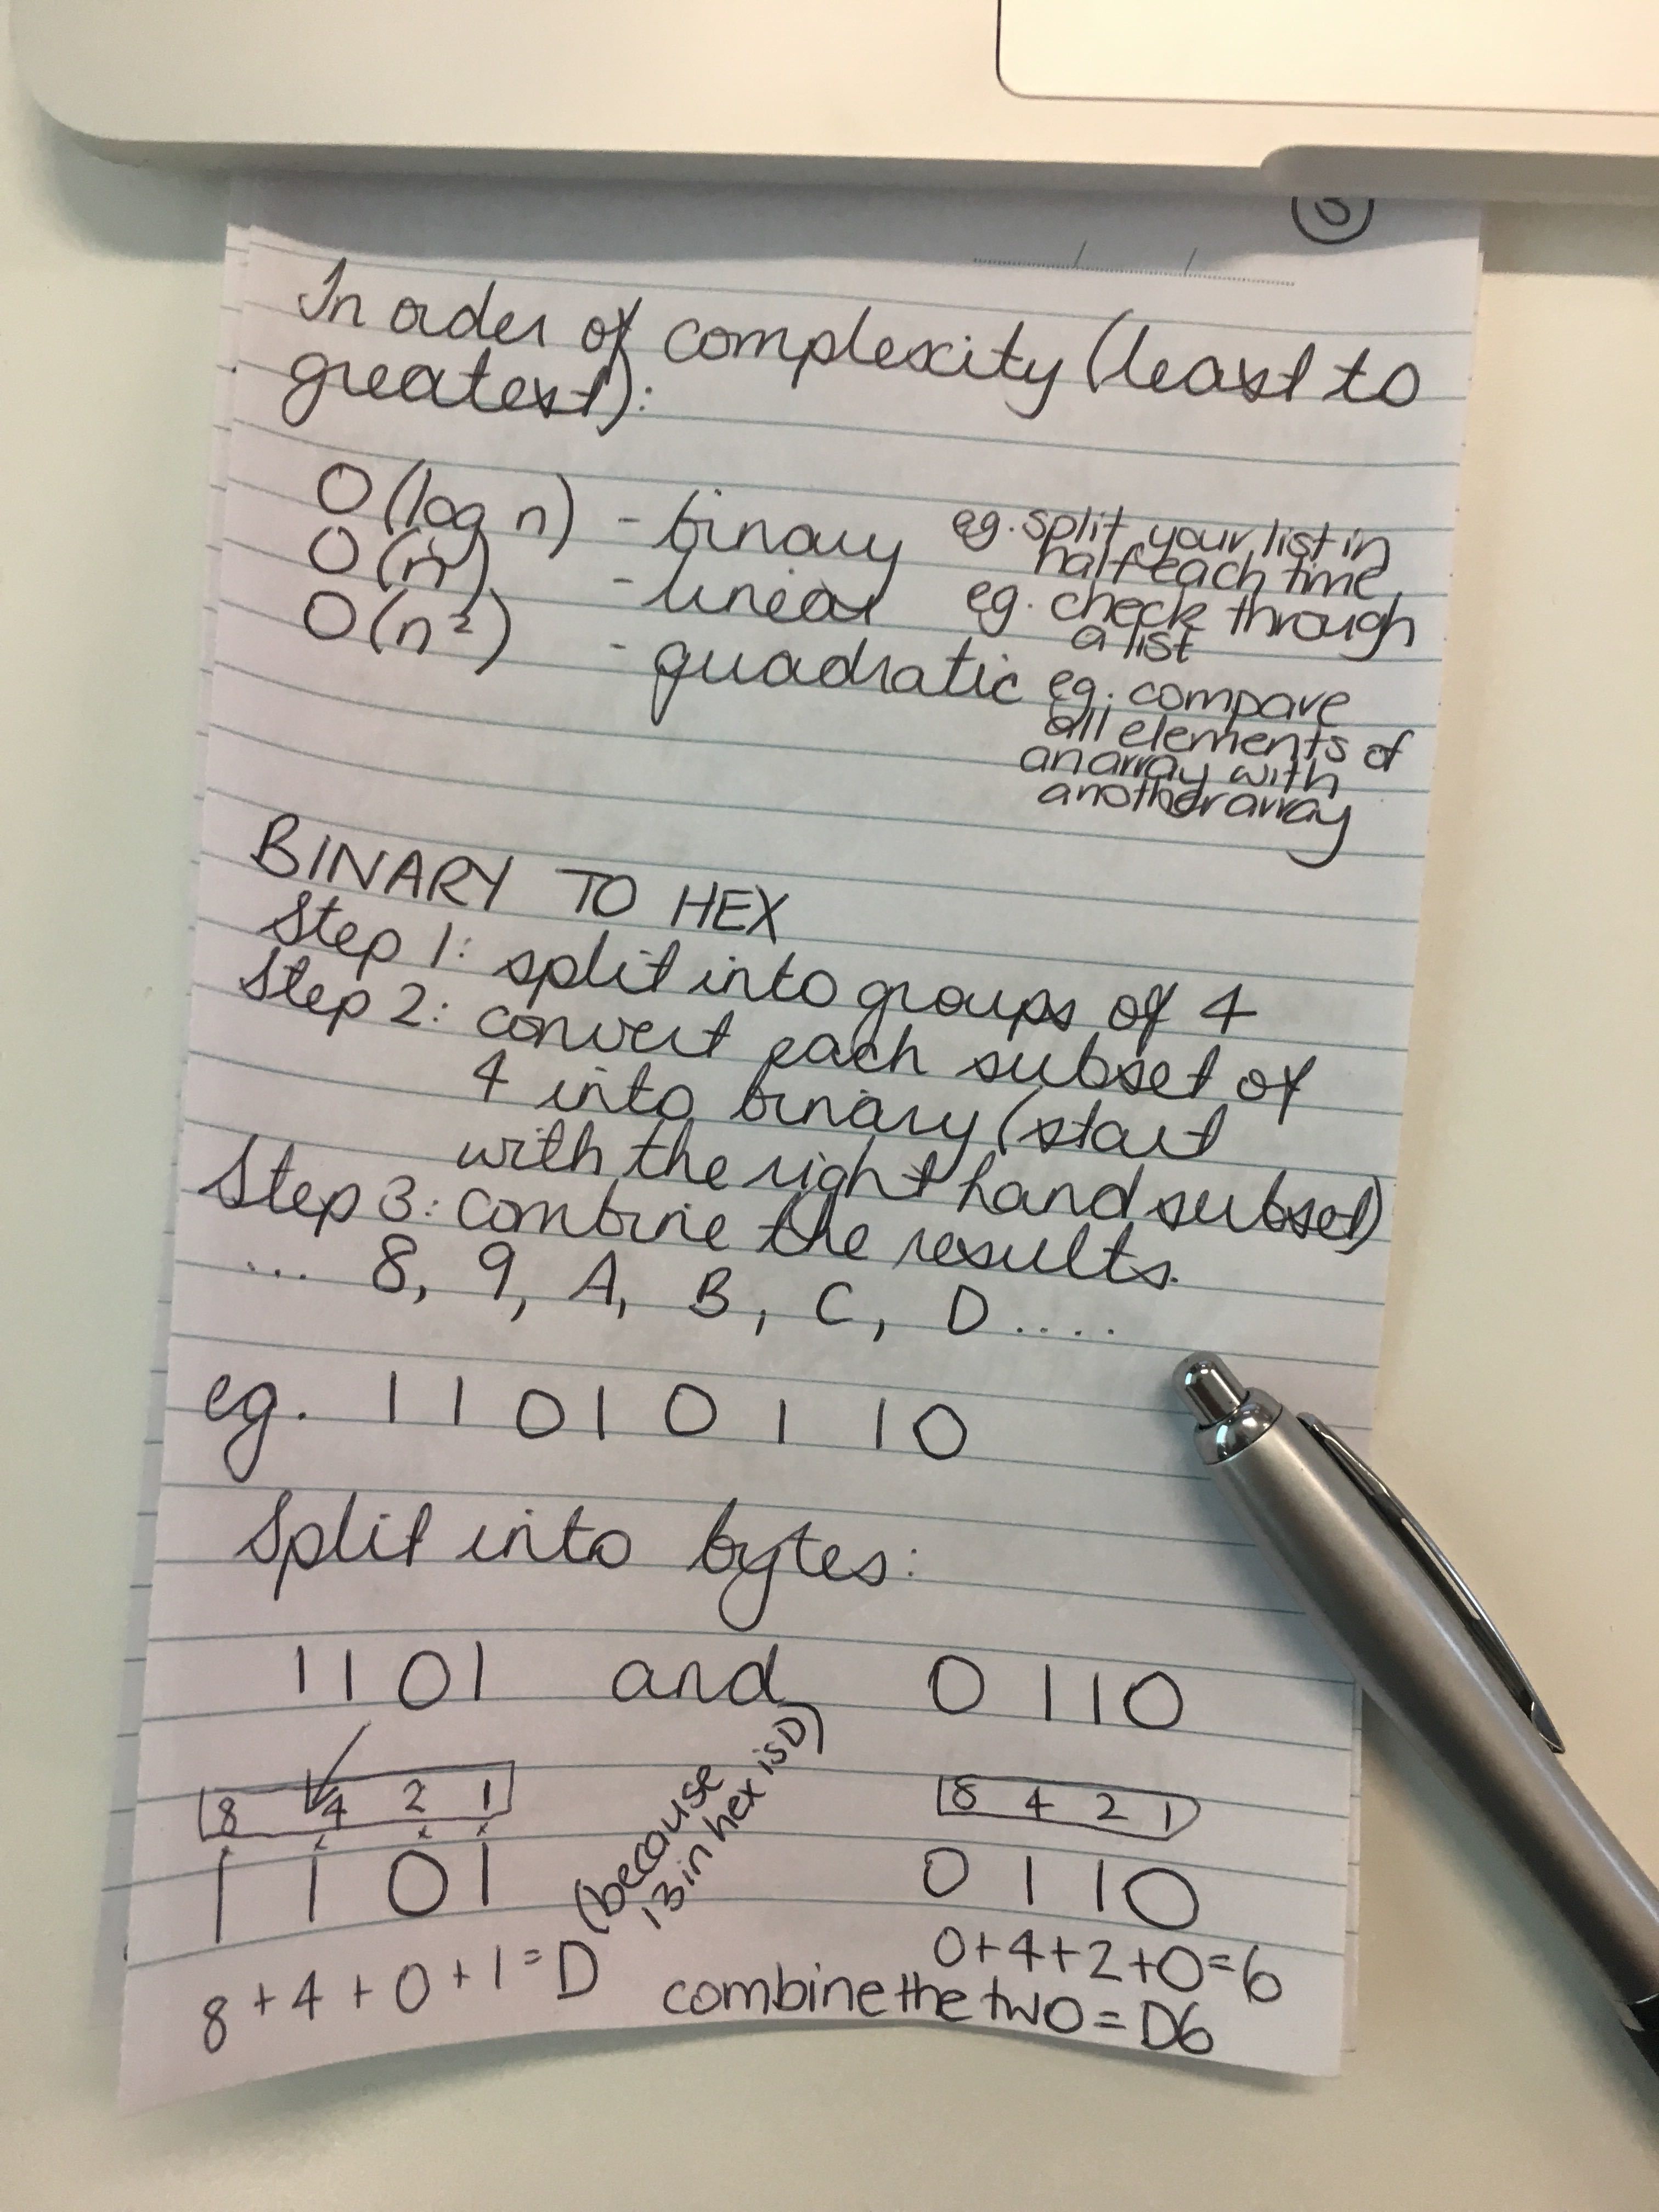 3
In order of complexity (least to
greatest):
O(log n) - binary eg. split your list in
half each time
O(n) - linear eg. check through
a list
O(n²) - quadratic eg. compare
all elements of
an array with
another array
BINARY TO HEX
Step 1: split into groups of 4
Step 2: convert each subset of
4 into binary (start
with the right hand subset)
Step 3: combine the results.
... 8, 9, A, B, C, D ....
eg. 1 1 0 1 0 1 1 0
Split into bytes:
1101 and 0110
8 4 2 1
1 1 0 1
8+4+0+1=D
(because
13 in hex is D)
8 4 2 1
0 1 1 0
0+4+2+0=6
combine the two = D6